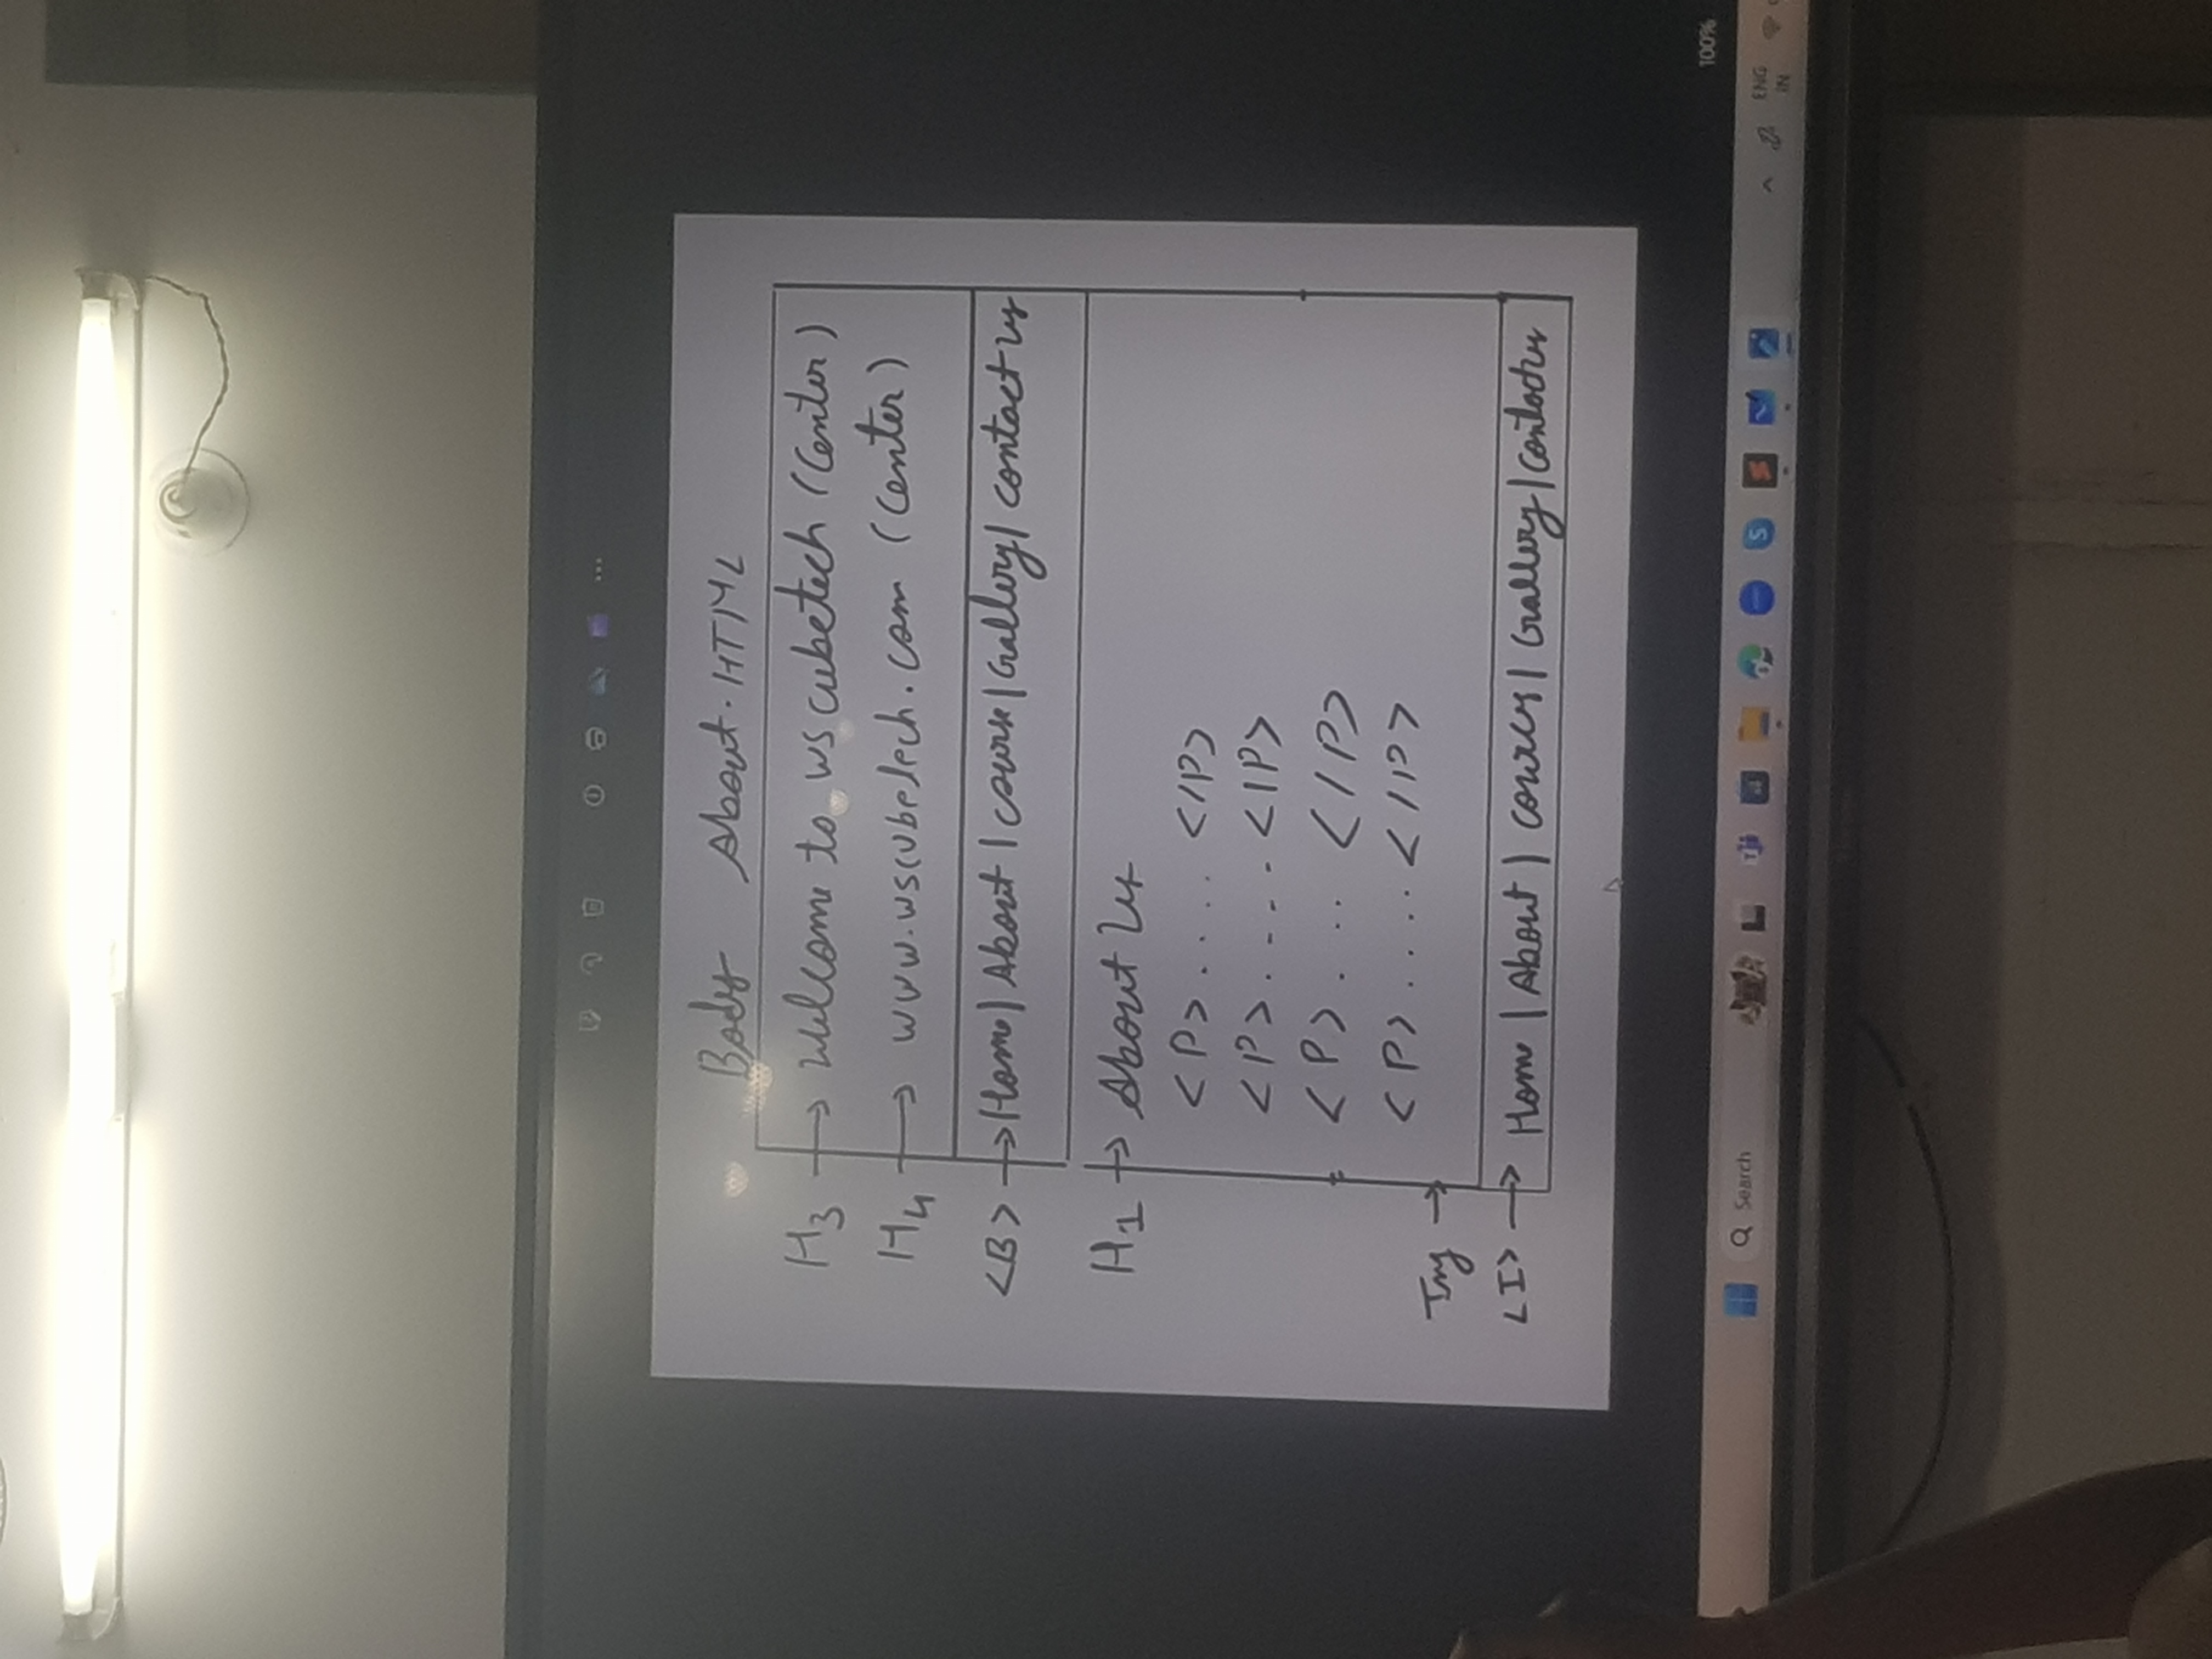 Body About.HTML
H3 → Welcome to wscubetech (Center)
H4 → www.wscubetech.com (Center)
<B> → Home | About | course | Gallery | contact us
H1 → About Us
<P> . . . . </P>
<P> . - - - </P>
<P> . . . </P>
<P> . . . . </P>
Img →
<I> → Home | About | courses | Gallery | Contactus
100%
Search
ENG
IN